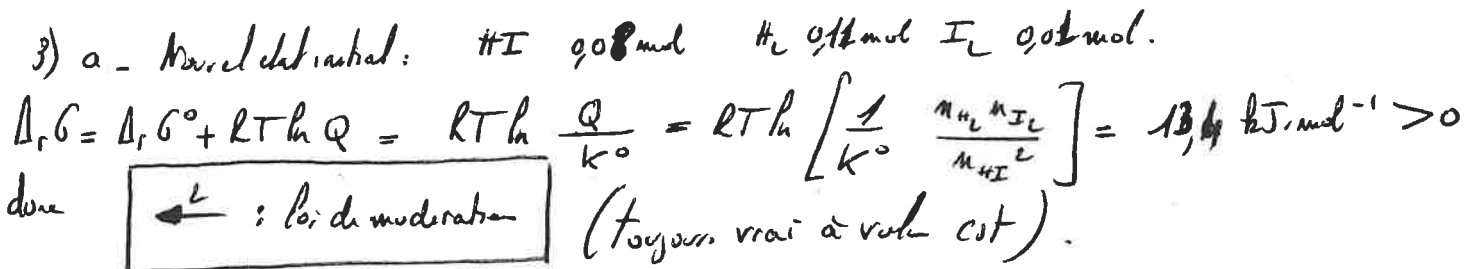 3) a - Nouvel état initial : HI 0,08 mol H₂ 0,11 mol I₂ 0,01 mol.
ΔᵣG = ΔᵣG° + RT ln Q = RT ln Q/K° = RT ln [ 1/K° n_H₂ n_I₂ / n_HI² ] = 13,4 kJ.mol⁻¹ > 0
donc ←² : loi de modération (toujours vrai à volume cst).